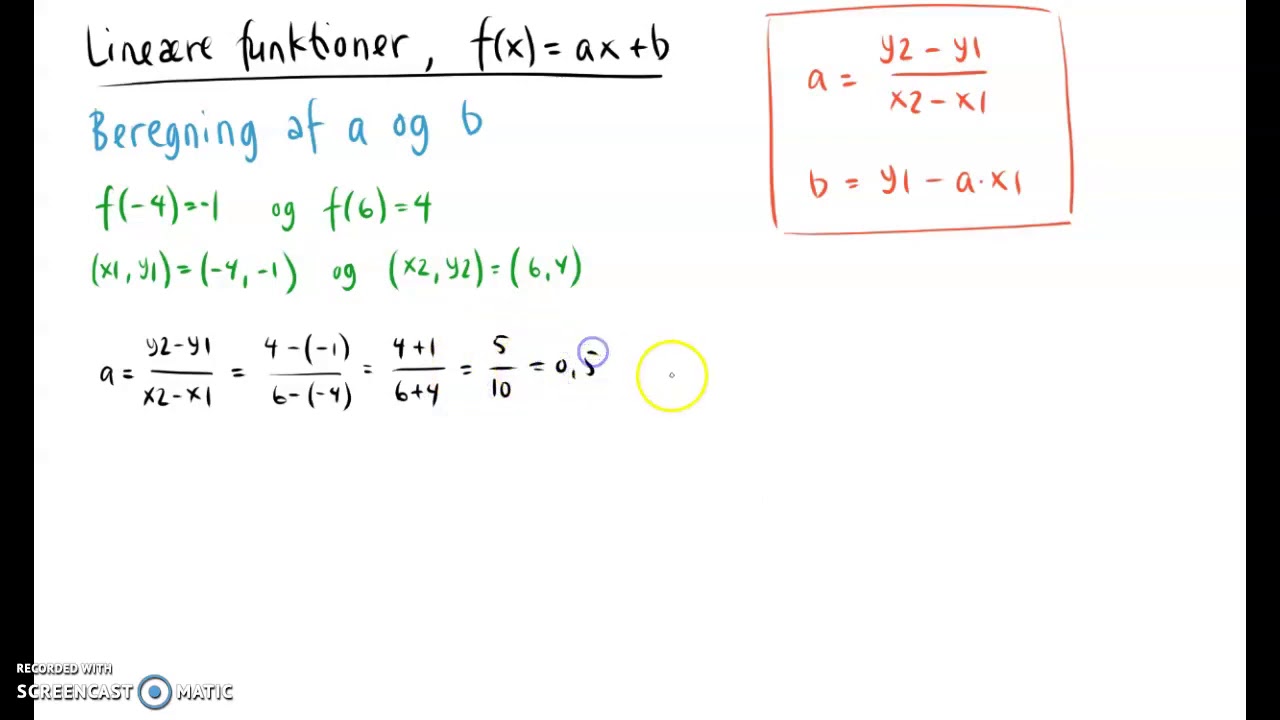 Lineære funktioner, f(x) = ax + b
Beregning af a og b
f(-4) = -1 og f(6) = 4
(x1, y1) = (-4, -1) og (x2, y2) = (6, 4)
a = y2 - y1 / x2 - x1 = 4 - (-1) / 6 - (-4) = 4 + 1 / 6 + 4 = 5 / 10 = 0,5
a = y2 - y1 / x2 - x1
b = y1 - a · x1
RECORDED WITH
SCREENCAST MATIC